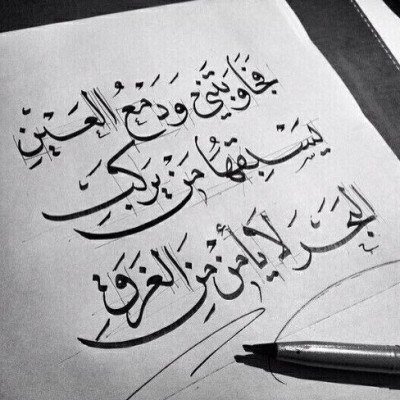 فجاوبتني ودمعُ العينِ
يَسبقها من يركبِ
البحر لا يأمن مِن الغرقِ